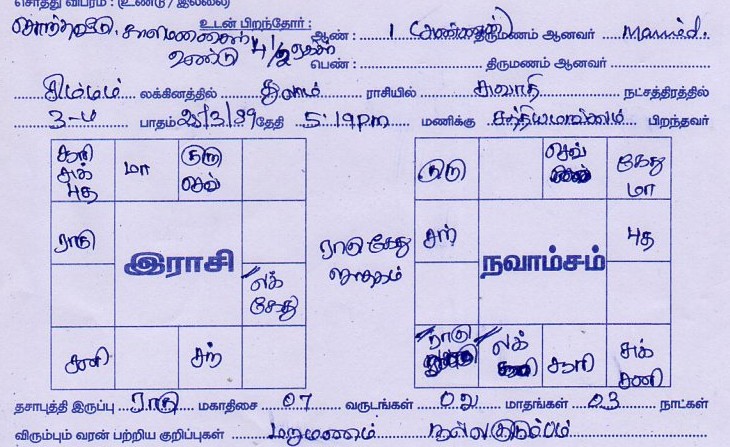 சொத்து விபரம் : (உண்டு / இல்லை)
சொந்த வீடு, காலிமனைகள் உடன் பிறந்தோர் : ஆண் : 1 (அண்ணன்) திருமணம் ஆனவர் married.
உண்டு 4/ பெண் : திருமணம் ஆனவர்
சிம்மம் லக்கினத்தில் துலாம் ராசியில் சுவாதி நட்சத்திரத்தில்
3-ம் பாதம் 25/3/89 தேதி 5:19pm மணிக்கு சத்தியமங்கலம் பிறந்தவர்
சூரி சுக் புத மா குரு செவ்
ராகு
இராசி
லக் கேது
சனி சந்
ராகு கேது ஜாதகம்
குரு செவ் கேது மா
சந் புத
நவாம்சம்
ராகு லக் சூரி சுக் சனி
தசாபுத்தி இருப்பு ராகு மகாதிசை 07 வருடங்கள் 02 மாதங்கள் 03 நாட்கள்
விரும்பும் வரன் பற்றிய குறிப்புகள் மறுமணம் நல்ல குடும்பம்